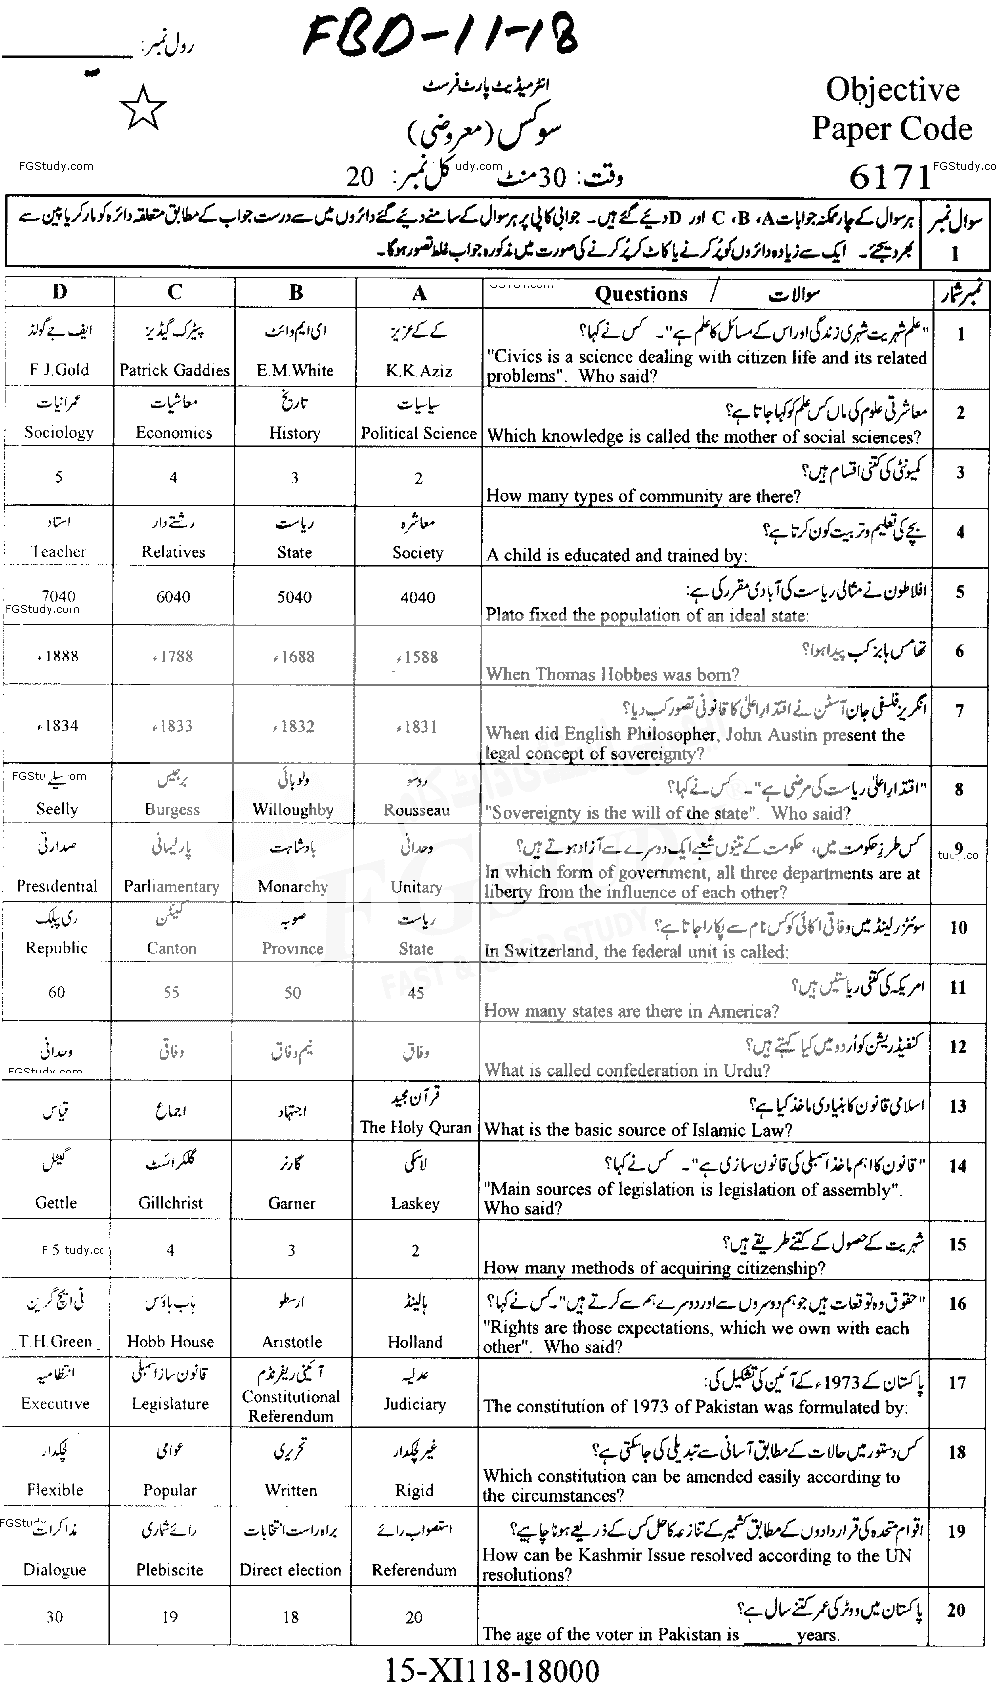 FBD-11-18
رول نمبر:
انٹرمیڈیٹ پارٹ فرسٹ
Objective
سوکس (معروضی)
Paper Code
FGStudy.com
وقت: 30 منٹ udy.com کل نمبر: 20
6171 FGStudy.co
سوال نمبر 1
ہر سوال کے چار ممکنہ جوابات A، B، C اور D دیئے گئے ہیں۔ جوابی کاپی پر ہر سوال کے سامنے دیئے گئے دائروں میں سے درست جواب کے مطابق متعلقہ دائرہ کو مارکر یا پین سے
بھر دیجئے۔ ایک سے زیادہ دائروں کو پُر کرنے یا کاٹ کر پُر کرنے کی صورت میں مذکورہ جواب غلط تصور ہوگا۔
D C B A Questions / سوالات نمبر شمار
ایف جے گولڈ پیٹرک گیڈیز ای ایم وائٹ کے کے عزیز "علم شہریت شہری زندگی اور اس کے مسائل کا علم ہے"۔ کس نے کہا؟ 1
F.J.Gold Patrick Gaddies E.M.White K.K.Aziz "Civics is a science dealing with citizen life and its related
problems". Who said?
عمرانیات معاشیات تاریخ سیاسیات معاشرتی علوم کی ماں کس علم کو کہا جاتا ہے؟ 2
Sociology Economics History Political Science Which knowledge is called the mother of social sciences?
کمیونٹی کی کتنی اقسام ہیں؟ 3
5 4 3 2 How many types of community are there?
استاد رشتے دار ریاست معاشرہ بچے کی تعلیم و تربیت کون کرتا ہے؟ 4
Teacher Relatives State Society A child is educated and trained by:
افلاطون نے مثالی ریاست کی آبادی مقرر کی ہے: 5
7040 6040 5040 4040 Plato fixed the population of an ideal state:
FGStudy.com
تھامس ہابز کب پیدا ہوا؟ 6
1888ء 1788ء 1688ء 1588ء When Thomas Hobbes was born?
انگریز فلسفی جان آسٹن نے اقتدار اعلیٰ کا قانونی تصور کب دیا؟ 7
1834ء 1833ء 1832ء 1831ء When did English Philosopher, John Austin present the
legal concept of sovereignty?
سیلے برجیس ولوبائی روسو "اقتدار اعلیٰ ریاست کی مرضی ہے"۔ کس نے کہا؟ 8
Seelly Burgess Willoughby Rousseau "Sovereignty is the will of the state". Who said?
صدارتی پارلیمانی بادشاہت وحدانی کس طرز حکومت میں، حکومت کے تینوں شعبے ایک دوسرے سے آزاد ہوتے ہیں؟ 9
Presidential Parliamentary Monarchy Unitary In which form of government, all three departments are at
liberty from the influence of each other?
ری پبلک کینٹن صوبہ ریاست سوئٹزرلینڈ میں وفاقی اکائی کو کس نام سے پکارا جاتا ہے؟ 10
Republic Canton Province State In Switzerland, the federal unit is called:
امریکہ کی کتنی ریاستیں ہیں؟ 11
60 55 50 45 How many states are there in America?
وحدانی وفاقی نیم وفاق وفاق کنفیڈریشن کو اُردو میں کیا کہتے ہیں؟ 12
FGStudy.com What is called confederation in Urdu?
قیاس اجماع اجتہاد قرآن مجید اسلامی قانون کا بنیادی ماخذ کیا ہے؟ 13
The Holy Quran What is the basic source of Islamic Law?
گیٹل گلکرائسٹ گارنر لاسکی "قانون کا اہم ماخذ اسمبلی کی قانون سازی ہے"۔ کس نے کہا؟ 14
Gettle Gillchrist Garner Laskey "Main sources of legislation is legislation of assembly".
Who said?
شہریت کے حصول کے کتنے طریقے ہیں؟ 15
5 4 3 2 How many methods of acquiring citizenship?
ٹی ایچ گرین ہاب ہاؤس ارسطو ہالینڈ "حقوق وہ توقعات ہیں جو ہم دوسروں سے اور دوسرے ہم سے کرتے ہیں"۔ کس نے کہا؟ 16
T.H.Green Hobb House Aristotle Holland "Rights are those expectations, which we own with each
other". Who said?
انتظامیہ قانون ساز اسمبلی آئینی ریفرنڈم عدلیہ پاکستان کے 1973ء کے آئین کی تشکیل کی: 17
Executive Legislature Constitutional Referendum Judiciary The constitution of 1973 of Pakistan was formulated by:
لچکدار عوامی تحریری غیر لچکدار کس دستور میں حالات کے مطابق آسانی سے تبدیلی کی جا سکتی ہے؟ 18
Flexible Popular Written Rigid Which constitution can be amended easily according to
the circumstances?
مذاکرات رائے شماری براہ راست انتخابات استصواب رائے اقوام متحدہ کی قراردادوں کے مطابق کشمیر کے تنازعہ کا حل کس کے ذریعے ہونا چاہیے؟ 19
Dialogue Plebiscite Direct election Referendum How can be Kashmir Issue resolved according to the UN
resolutions?
پاکستان میں ووٹر کی عمر کتنے سال ہے؟ 20
30 19 18 20 The age of the voter in Pakistan is _____ years.
15-XI118-18000